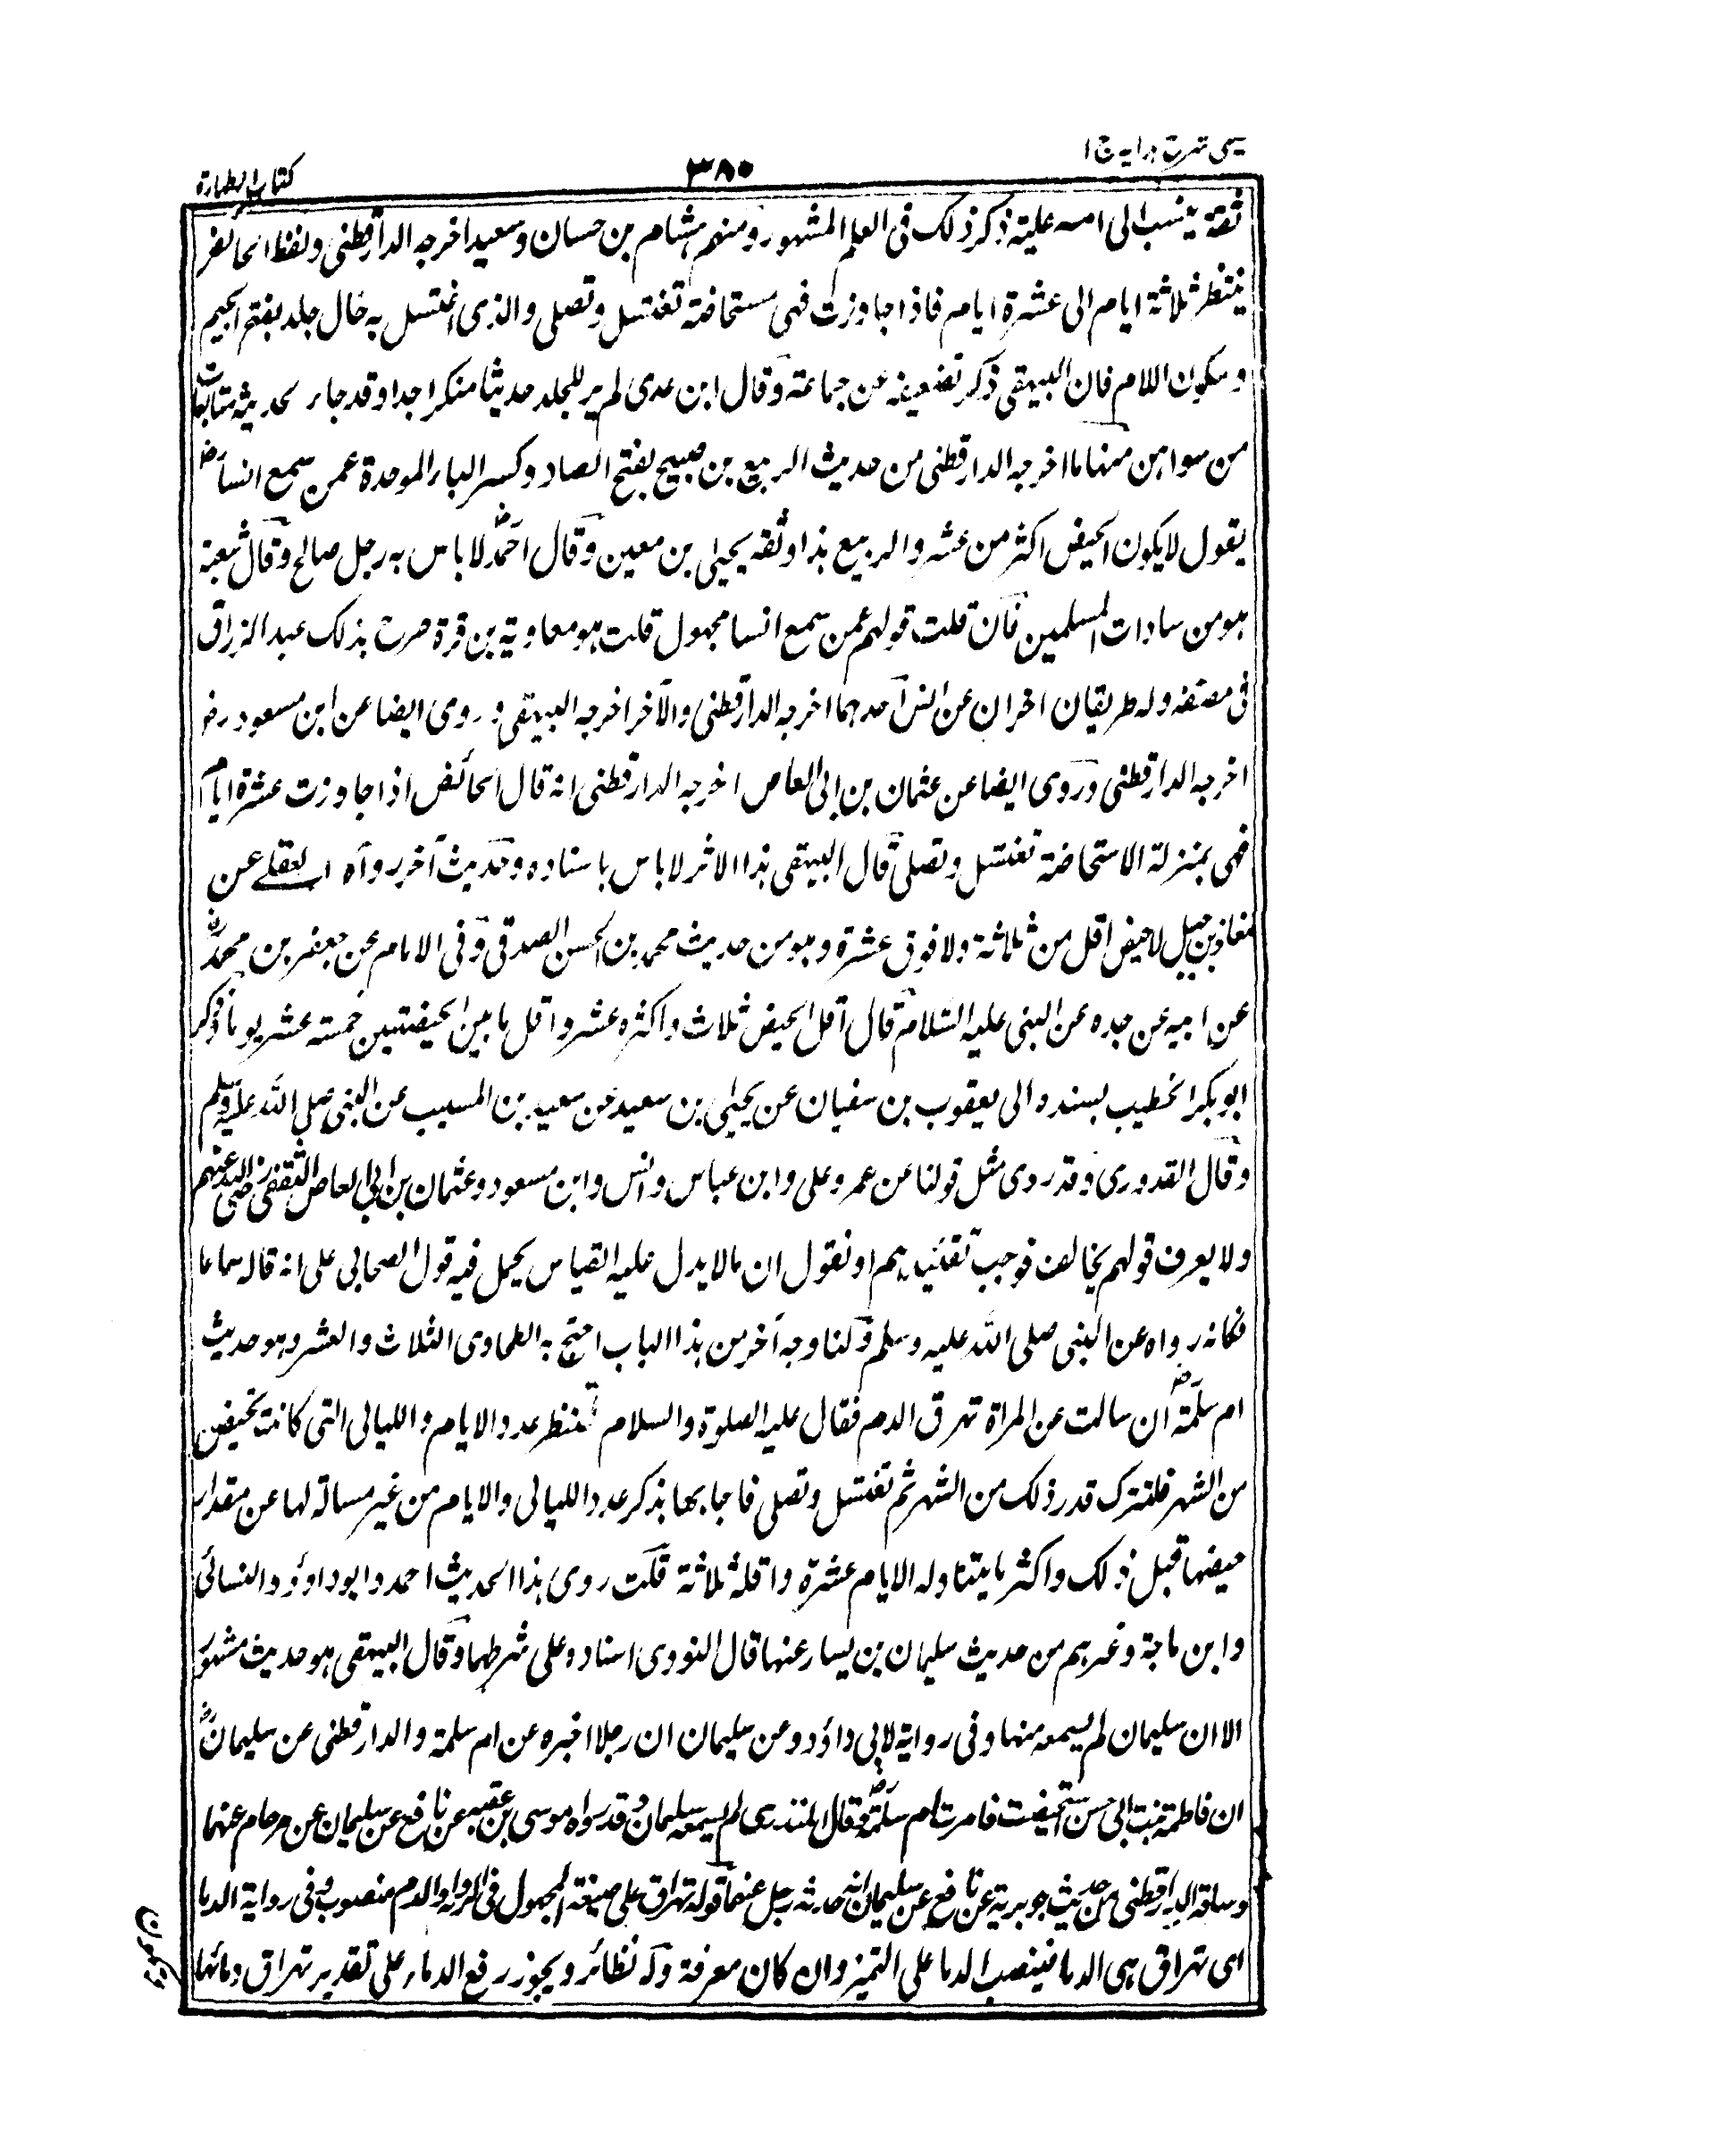 عینی شرح ہدایہ ج ١
٣٨٠
کتاب الطہارۃ
ثقة ینسب الی امه علیة ذکر ذلک فی العلم المشہور ومنہم ہشام بن حسان وسعید اخرجه الدارقطنی ولفظ الحائض
ینتظر ثلاثة ایام الی عشرة ایام فاذا جاوزت فہی مستحاضة تغتسل وتصلی والذی اغتسل به خال جلد بفتح الجیم
وسکون اللام فان البیہقی ذکر تضعیفه عن جماعة وقال ابن عدی لم یر للجلد حدیثا منکرا جدا وقد جاء لحدیثه متابعات
من سواہن منہا ما اخرجه الدارقطنی من حدیث الربیع بن صبیح بفتح الصاد وکسر الباء الموحدة عمن سمع انسا رض
یقول لا یکون الحیض اکثر من عشر والربیع ہذا وثقه یحیٰی بن معین وقال احمدؒ لا باس به رجل صالح وقال شعبة
ہو من سادات المسلمین فان قلت قولہم عمن سمع انسا مجہول قلت ہو معاویة بن قرة صرح بذلک عبد الرزاق
فی مصنفه وله طریقان اخران عن انس احدہما اخرجه الدارقطنی والآخر اخرجه البیہقی وروی ایضا عن ابن مسعود رضـ
اخرجه الدارقطنی وروی ایضا عن عثمان بن ابی العاص اخرجه الدارقطنی انه قال الحائض اذا جاوزت عشرة ایام
فہی بمنزلة الاستحاضة تغتسل وتصلی قال البیہقی ہذا الاثر لا باس باسناده وحدیث آخر رواه العقلے عن
معاذ بن جبل لا حیض اقل من ثلاثة ولا فوق عشرة وہو من حدیث محمد بن الحسن الصدقی وفی الامام عن جعفر بن محمد رض
عن ابیه عن جده عن النبی علیه السلام قال اقل الحیض ثلاث واکثره عشر واقل ما بین الحیضتین خمسة عشر یوما ذکر
ابو بکر الخطیب بسنده الی یعقوب بن سفیان عن یحیٰی بن سعید عن سعید بن المسیب عن النبی صلی اللہ علیه وسلم
وقال القدوری وقد روی مثل قولنا عن عمر وعلی وابن عباس وانس وابن مسعود وعثمان بن ابی العاص الثقفی رضی اللہ عنہم
ولا یعرف قولہم یخالف فوجب تقلیدہم او نقول ان ما لا یدل علیه القیاس یحمل فیه قول الصحابی علی انه قاله سماعا
فکانه رواه عن النبی صلی اللہ علیه وسلم ولنا وجه آخر من ہذا الباب احتج به الطحاوی الثلاث والعشر وہو حدیث
ام سلمةؓ ان سالت عن المراة تہرق الدم فقال علیه الصلوة والسلام تنتظر عدد الایام واللیالی التی کانت تحیض
من الشہر فلتترک قدر ذلک من الشہر ثم تغتسل وتصلی فاجابہا بذکر عدد اللیالی والایام من غیر مسالة لہا عن مقدار
حیضہا قبل ذلک واکثر ما یتناوله الایام عشرة واقله ثلاثة قلت روی ہذا الحدیث احمد وابو داؤد والنسائی
وابن ماجة وغیرہم من حدیث سلیمان بن یسار عنہا قال النووی اسناده علی شرطہما وقال البیہقی ہو حدیث مشہور
الا ان سلیمان لم یسمعه منہا وفی روایة لابی داؤد وعن سلیمان ان رجلا اخبره عن ام سلمة والدارقطنی عن سلیمان رض
ان فاطمة بنت ابی حبیش استحیضت فامرت ام سلمةؓ وقال المنذری لم یسمعه سلیمان وقد رواه موسی بن عقبه عن نافع عن سلیمان عن مرجام عنہا
وساقه الدارقطنی من حدیث جویریة عن نافع عن سلیمان انه حدثه رجل عنہا قوله تہراق علی صیغة المجہول فی المراد والدم منصوب وفی روایة الدما
ای تہراق ہی الدما فینصب الدما علی التمیز وان کان معرفة وله نظائر ویجوز رفع الدماء علی تقدیر تہراق دمائہا